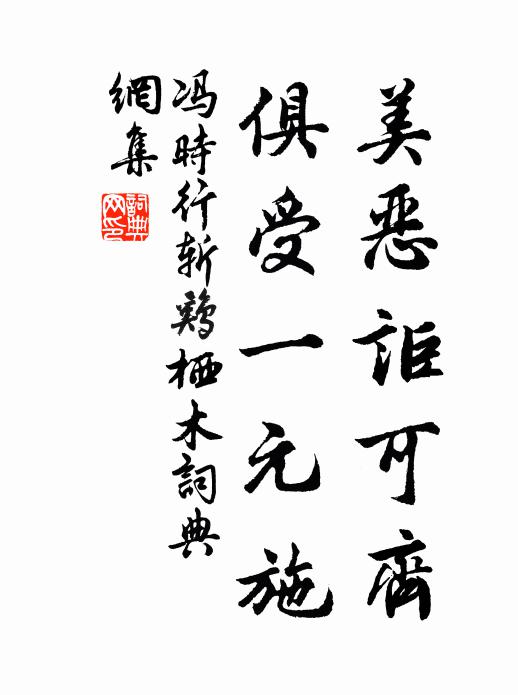 美惡詎可齊
俱受一元施
冯時行斩鷄栖木詞典
網集
詞典網印